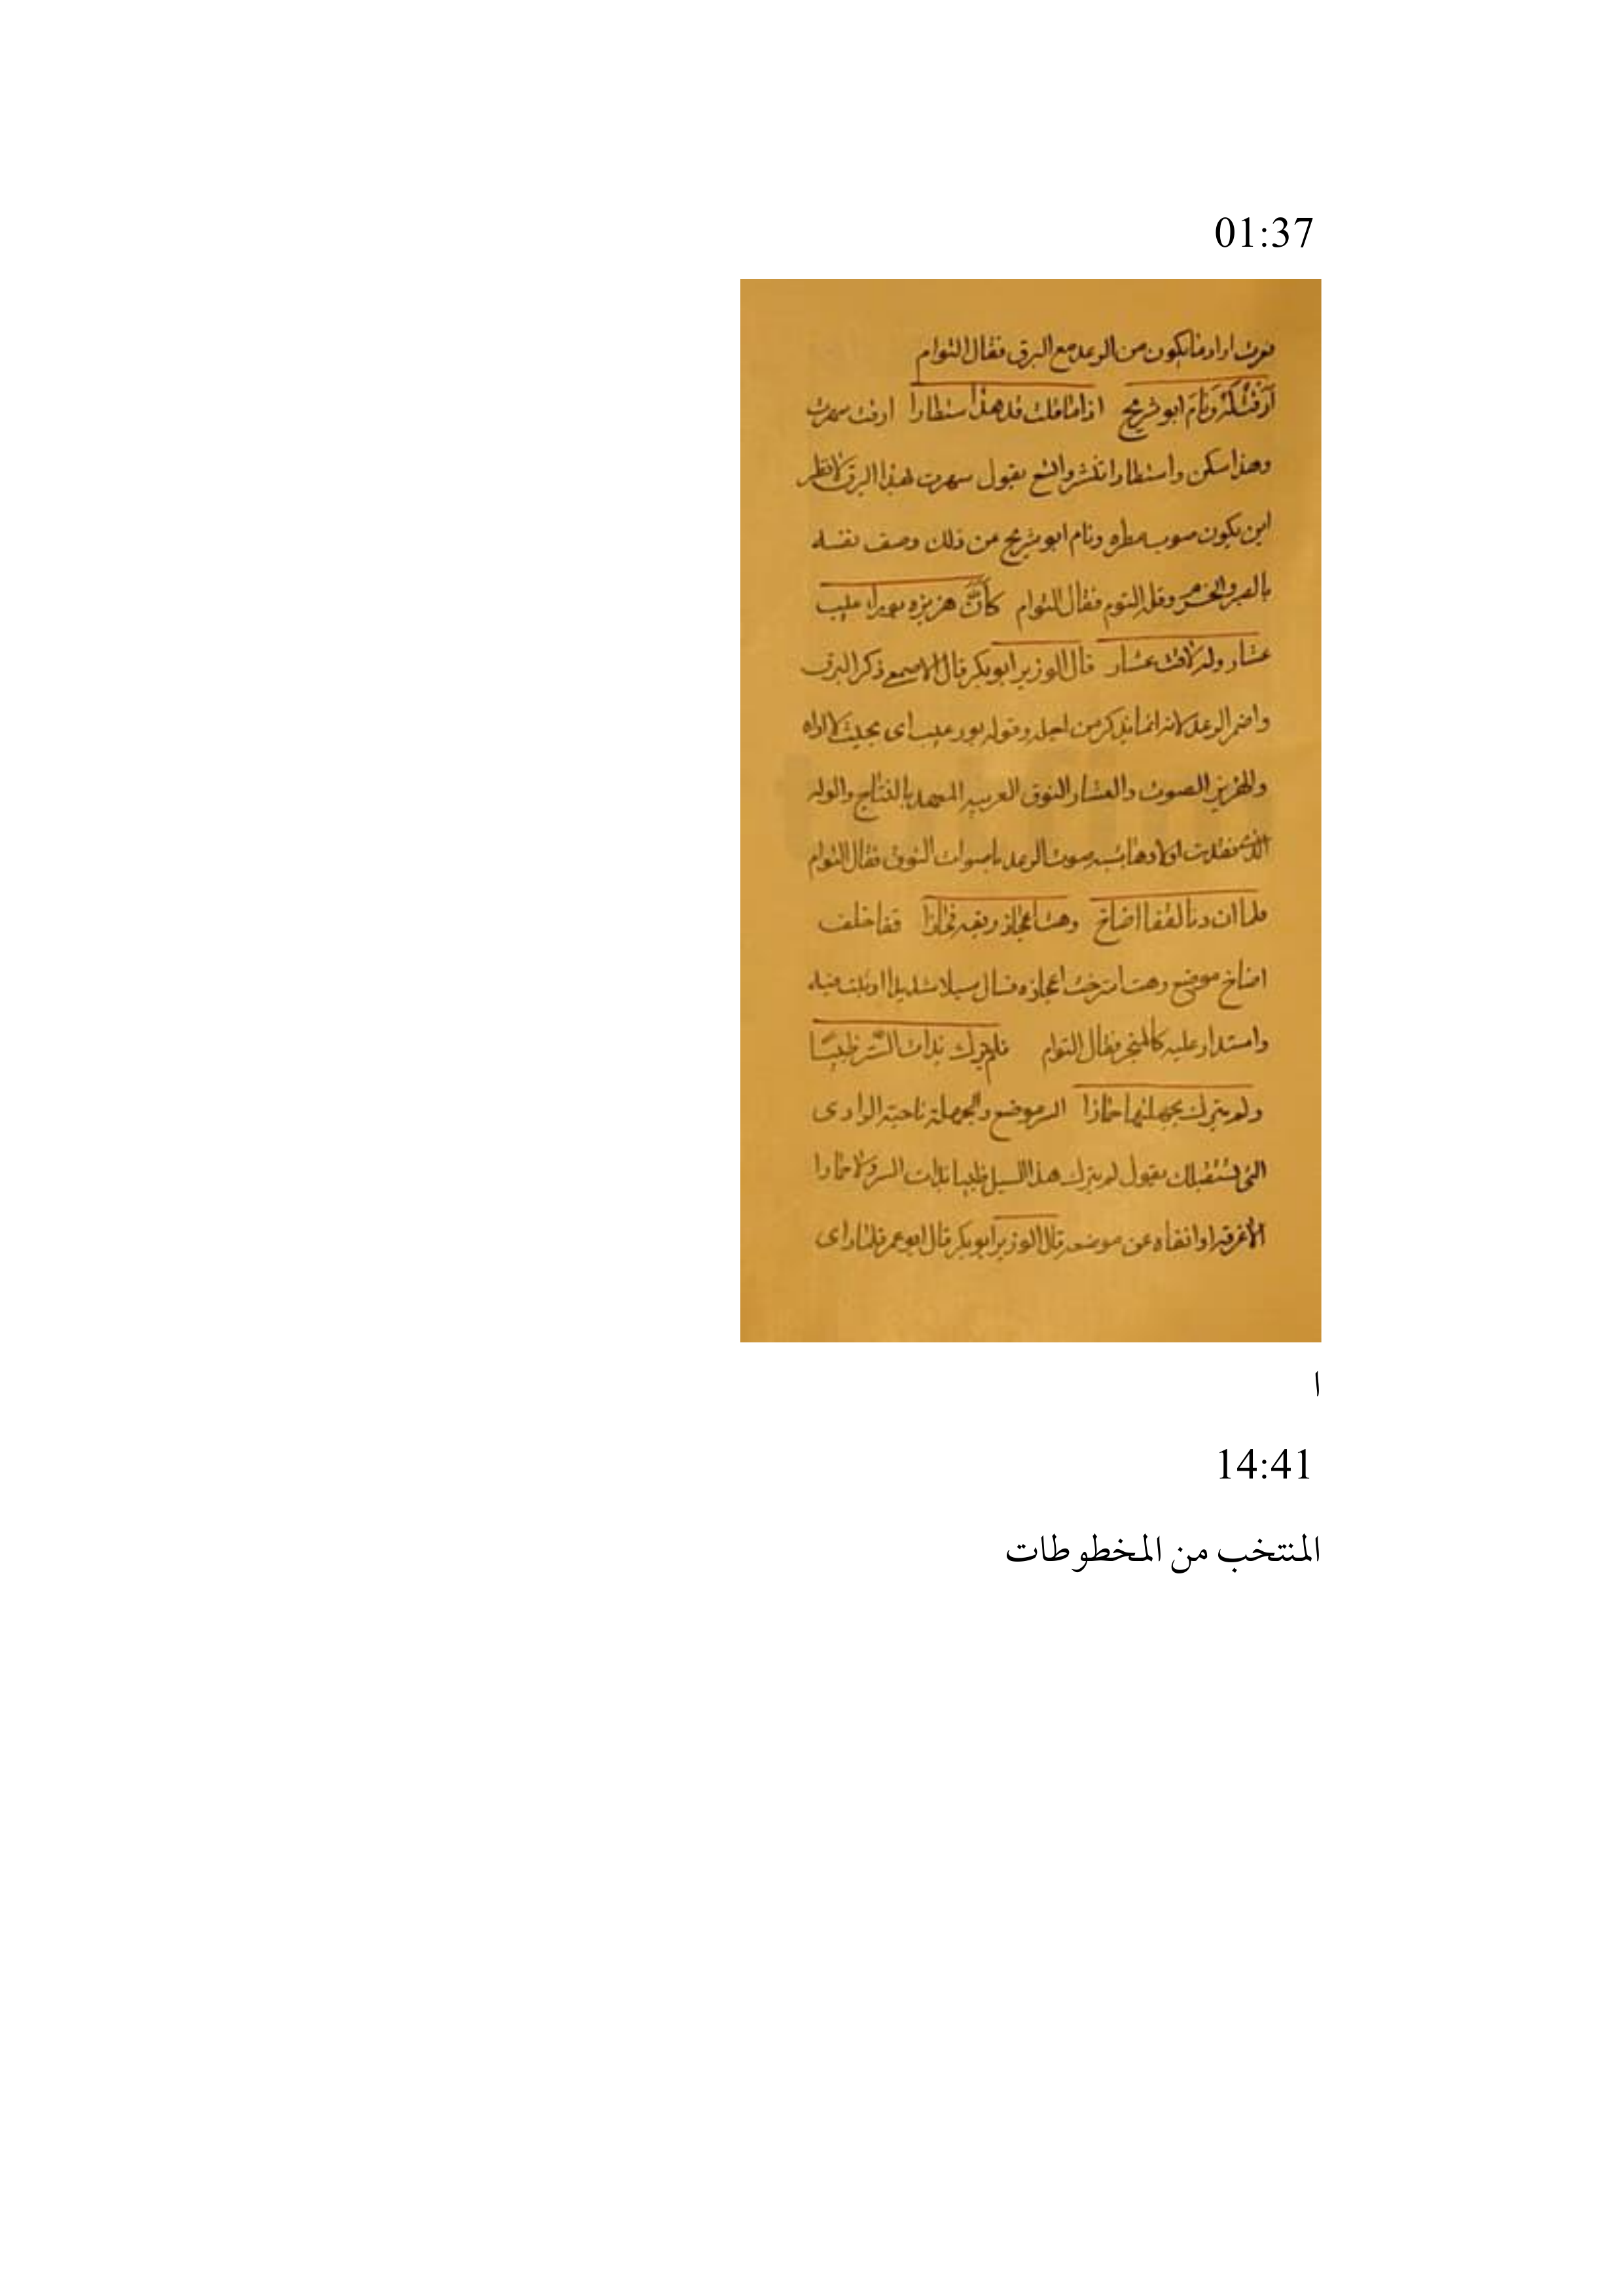 01:37
صوت اراد ما يكون من الرعد مع البرق فقال التوام
أرقت له ونام ابو شريح اذا ما قلت قد هذا استطارا ارقت سهرت
وهذا سكن واستطار انتشر واتسع يقول سهرت لهذا البرق لانظر
اين يكون صوب مطره ونام ابو شريح عن ذلك وصف نفسه
بالصبر والحزم وقلة النوم فقال التوام كأن هزيزه بوراء غيب
عشار وله لاقت عشار قال الوزير ابو بكر قال الاصمعي ذكر البرق
واضمر الرعد لانه انما يذكر من اجله وقوله بورا غيب اى بحيث لا اراه
والهزيز الصوت والعشار النوق القريبه العهد بالنتاج والوله
التي فقدت اولادها يشبه صوت الرعد باصوات النوق فقال التوام
فلما ان دنا لقفا اضاخ وهت اعجاز ريقه فحارا قفا خلف
اضاخ موضع وهت استرخت اعجازه فسال سيلا شديدا او ثبت فيه
واستدار عليه كالمتحير فقال التوام فلم يترك بذات السر ظبيا
ولم يترك بجهلتها حمارا السر موضع والجهلة ناحية الوادى
التى تستقبلك يقول لم يترك هذا السيل ظبيا بذات السر ولا حمارا
الا غرقه او انفاه عن موضعه قال الوزير ابو بكر قال ابو عمر فلما راى
ا
14:41
المنتخب من المخطوطات